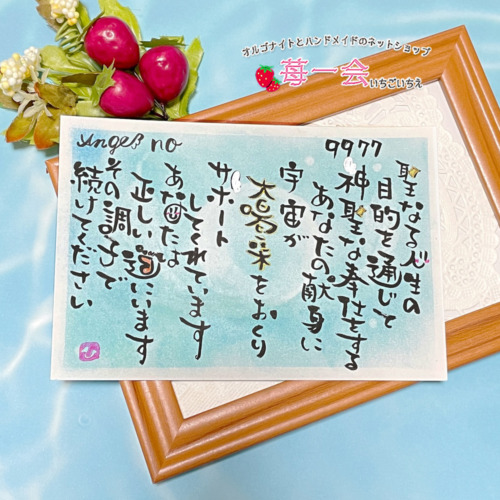 オルゴナイトとハンドメイドのネットショップ
苺一会 いちごいちえ
Angel no 9977
聖なる人生の
目的を通じて
神聖な奉仕をする
あなたの献身に
宇宙が
大喝采をおくり
サポート
してくれています
あなたは
正しい道にいます
その調子で
続けてください